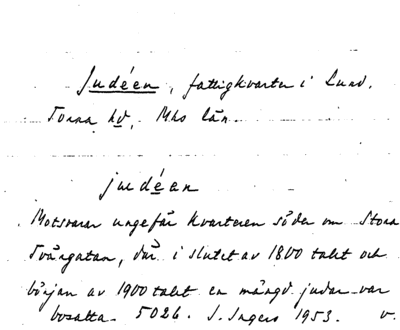 Judéen, fattigkvarter i Lund.
Torna hd, Mhs län.
judéan
Motsvarar ungefär kvarteren söder om Stora
Tvärgatan, där i slutet av 1800 talet och
början av 1900 talet en mängd judar var
bosatta. 5026. I. Ingers 1953. v.